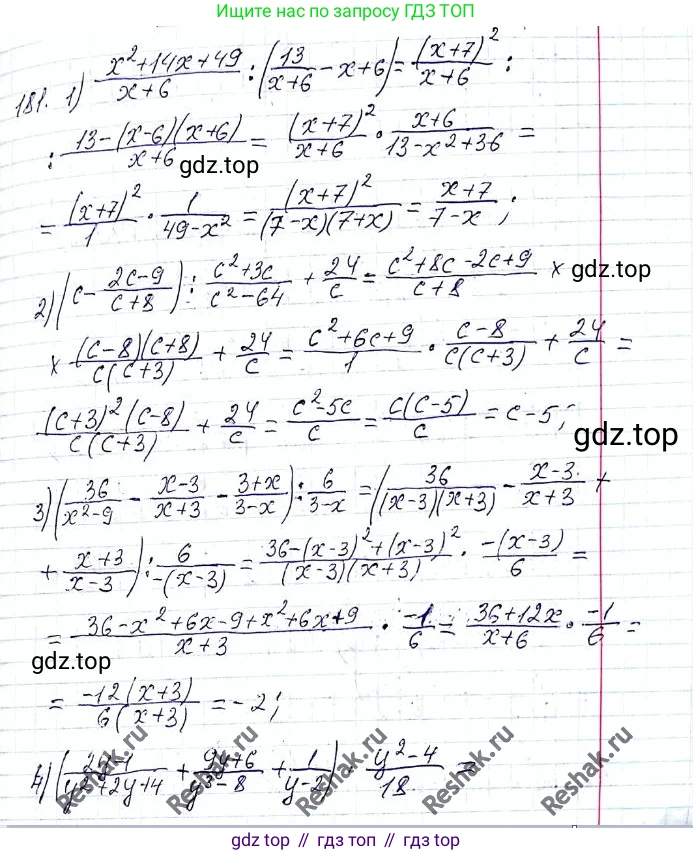 Ищите нас в поиске по запросу ГДЗ ТОП
181. 1) (x²+14x+49)/(x+6) : (13/(x+6) - x+6) = (x+7)²/(x+6) :
: (13-(x-6)(x+6))/(x+6) = (x+7)²/(x+6) · (x+6)/(13-x²+36) =
gdz.top
= (x+7)²/1 · 1/(49-x²) = (x+7)²/((7-x)(7+x)) = (x+7)/(7-x) ;
gdz.top
2) (c - (2c-9)/(c+8)) : (c²+3c)/(c²-64) + 24/c = (c²+8c-2c+9)/(c+8) ×
× ((c-8)(c+8))/(c(c+3)) + 24/c = (c²+6c+9)/1 · (c-8)/(c(c+3)) + 24/c =
((c+3)²(c-8))/(c(c+3)) + 24/c = (c²-5c)/c = (c(c-5))/c = c-5;
gdz.top
3) (36/(x²-9) - (x-3)/(x+3) - (3+x)/(3-x)) : 6/(3-x) = (36/((x-3)(x+3)) - (x-3)/(x+3) +
+ (x+3)/(x-3)) : 6/(-(x-3)) = (36-(x-3)²+(x-3)²)/((x-3)(x+3)) · (-(x-3))/6 =
= (36-x²+6x-9+x²+6x+9)/(x+3) · (-1)/6 = (36+12x)/(x+6) · (-1)/6 =
gdz.top
= (-12(x+3))/(6(x+3)) = -2;
Reshak.ru Reshak.ru Reshak.ru Reshak.ru
4) ( /(y²+2y+4) + (9y+6)/(y³-8) + 1/(y-2)) · (y²-4)/18 =
gdz top // гдз топ // gdz.top